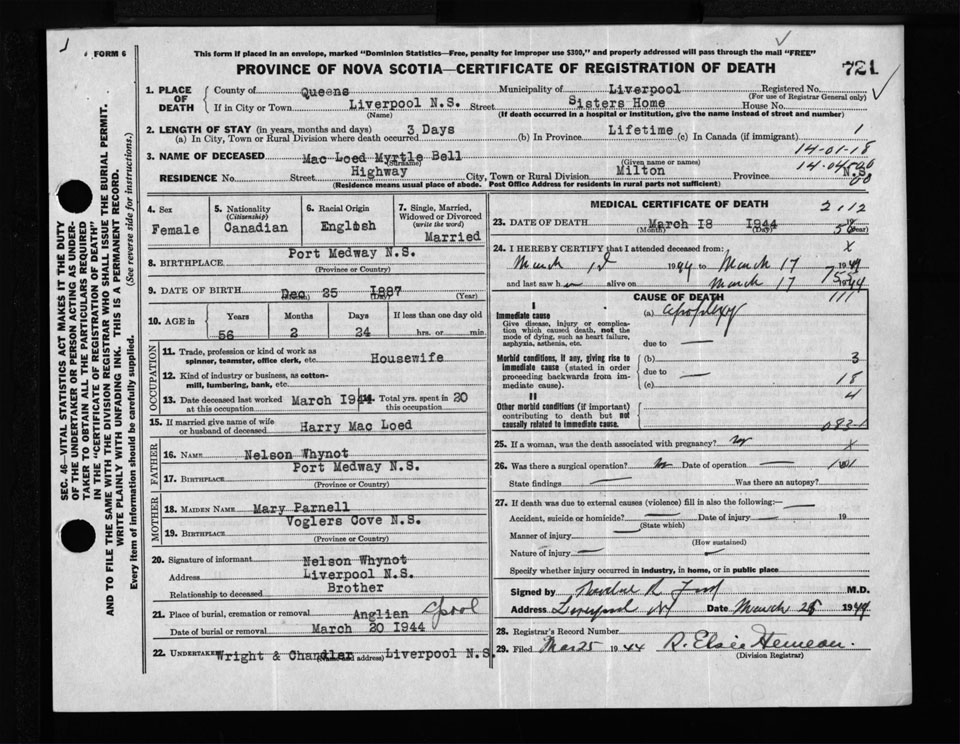 FORM 6
This form if placed in an envelope, marked "Dominion Statistics—Free, penalty for improper use $300," and properly addressed will pass through the mail "FREE"
PROVINCE OF NOVA SCOTIA—CERTIFICATE OF REGISTRATION OF DEATH
721
1. PLACE OF DEATH
County of Queens Municipality of Liverpool Registered No.
(For use of Registrar General only)
If in City or Town Liverpool N.S. Street Sisters Home House No.
(Name) (If death occurred in a hospital or institution, give the name instead of street and number)
2. LENGTH OF STAY (in years, months and days) 3 Days Lifetime 1
(a) In City, Town or Rural Division where death occurred (b) In Province (c) In Canada (if immigrant)
14-01-18
3. NAME OF DECEASED Mac Loed Myrtle Bell
(Surname) (Given name or names)
RESIDENCE No. Street Highway City, Town or Rural Division Milton Province N.S.
(Residence means usual place of abode. Post Office Address for residents in rural parts not sufficient)
4. Sex Female
5. Nationality (Citizenship) Canadian
6. Racial Origin English
7. Single, Married, Widowed or Divorced (write the word) Married
8. BIRTHPLACE Port Medway N.S.
(Province or Country)
9. DATE OF BIRTH Dec 25 1887
(Month) (Day) (Year)
10. AGE in Years Months Days If less than one day old
56 2 24 hrs. or min.
OCCUPATION
11. Trade, profession or kind of work as spinner, teamster, office clerk, etc. Housewife
12. Kind of industry or business, as cotton-mill, lumbering, bank, etc.
13. Date deceased last worked at this occupation March 1944 14. Total yrs. spent in this occupation 20
15. If married give name of wife or husband of deceased Harry Mac Loed
FATHER
16. NAME Nelson Whynot
17. BIRTHPLACE Port Medway N.S.
(Province or Country)
MOTHER
18. MAIDEN NAME Mary Parnell
19. BIRTHPLACE Voglers Cove N.S.
(Province or Country)
20. Signature of informant Nelson Whynot
Address Liverpool N.S.
Relationship to deceased Brother
21. Place of burial, cremation or removal Anglian
Date of burial or removal March 20 1944
22. UNDERTAKER Wright & Chandler Liverpool N.S.
(Name and address)
MEDICAL CERTIFICATE OF DEATH
2112
23. DATE OF DEATH March 18 1944
(Month) (Day) (Year)
56
24. I HEREBY CERTIFY that I attended deceased from: X
March 1944 to March 17 1944
and last saw h alive on March 17 1944
CAUSE OF DEATH
111
I
Immediate cause
Give disease, injury or complication which caused death, not the mode of dying, such as heart failure, asphyxia, asthenia, etc.
(a) apoplexy
due to —
Morbid conditions, if any, giving rise to immediate cause (stated in order proceeding backwards from immediate cause).
(b) 3
due to —
(c) 18
4
II
Other morbid conditions (if important) contributing to death but not causally related to immediate cause.
083-1
25. If a woman, was the death associated with pregnancy? no X
26. Was there a surgical operation? no Date of operation —
State findings — Was there an autopsy?
27. If death was due to external causes (violence) fill in also the following:—
Accident, suicide or homicide? — Date of injury — 19
(State which)
Manner of injury
(How sustained)
Nature of injury —
Specify whether injury occurred in industry, in home, or in public place
Signed by Theodore R. Ford M.D.
Address Liverpool NS Date March 25 1944
28. Registrar's Record Number
29. Filed Mar 25 1944 R. Elsie Hemeon.
(Division Registrar)
SEC. 46—VITAL STATISTICS ACT MAKES IT THE DUTY
OF THE UNDERTAKER OR PERSON ACTING AS UNDER-
TAKER TO OBTAIN ALL THE PARTICULARS REQUIRED
IN THE "CERTIFICATE OF REGISTRATION OF DEATH"
AND TO FILE THE SAME WITH THE DIVISION REGISTRAR WHO SHALL ISSUE THE BURIAL PERMIT.
WRITE PLAINLY WITH UNFADING INK. THIS IS A PERMANENT RECORD.
Every item of information should be carefully supplied. (See reverse side for instructions.)